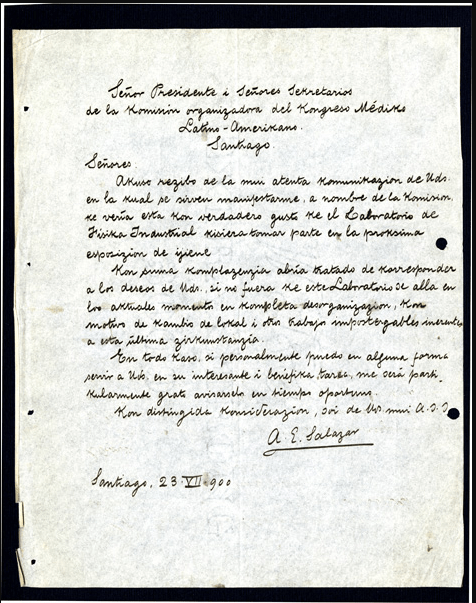 Señor Presidente i Señores Sekretarios
de la Komisión organizadora del Kongreso Médiko
Latino-Amerikano.
Santiago
Señores.
Akuso rezibo de la mui atenta komunikazion de Uds.
en la kual se sirven manifestarme, a nombre de la Komision,
ke vería esta kon verdadero gusto ke el Laboratorio de
Física Industrial kisiera tomar parte en la proksima
esposizion de ijiene
Kon suma komplazenzia abría tratado de korresponder
a los deseos de Uds., si no fuera ke este Laboratorio se alla en
los aktuales momento en kompleta desorganizazion, kon
motivo de kambio de lokal i otro trabajo impostergables inherentes
a esta última zirkunstanzia.
En todo kaso, si personalmente puedo en alguna forma
servir a Uds. en su interesante i benéfika tarea, me será parti-
kularmente grato avisarselo en tiempo oportuno.
Kon distingida konsiderazion, soi de Uds mui A.S.S
A. E. Salazar
Santiago, 23·VII·900